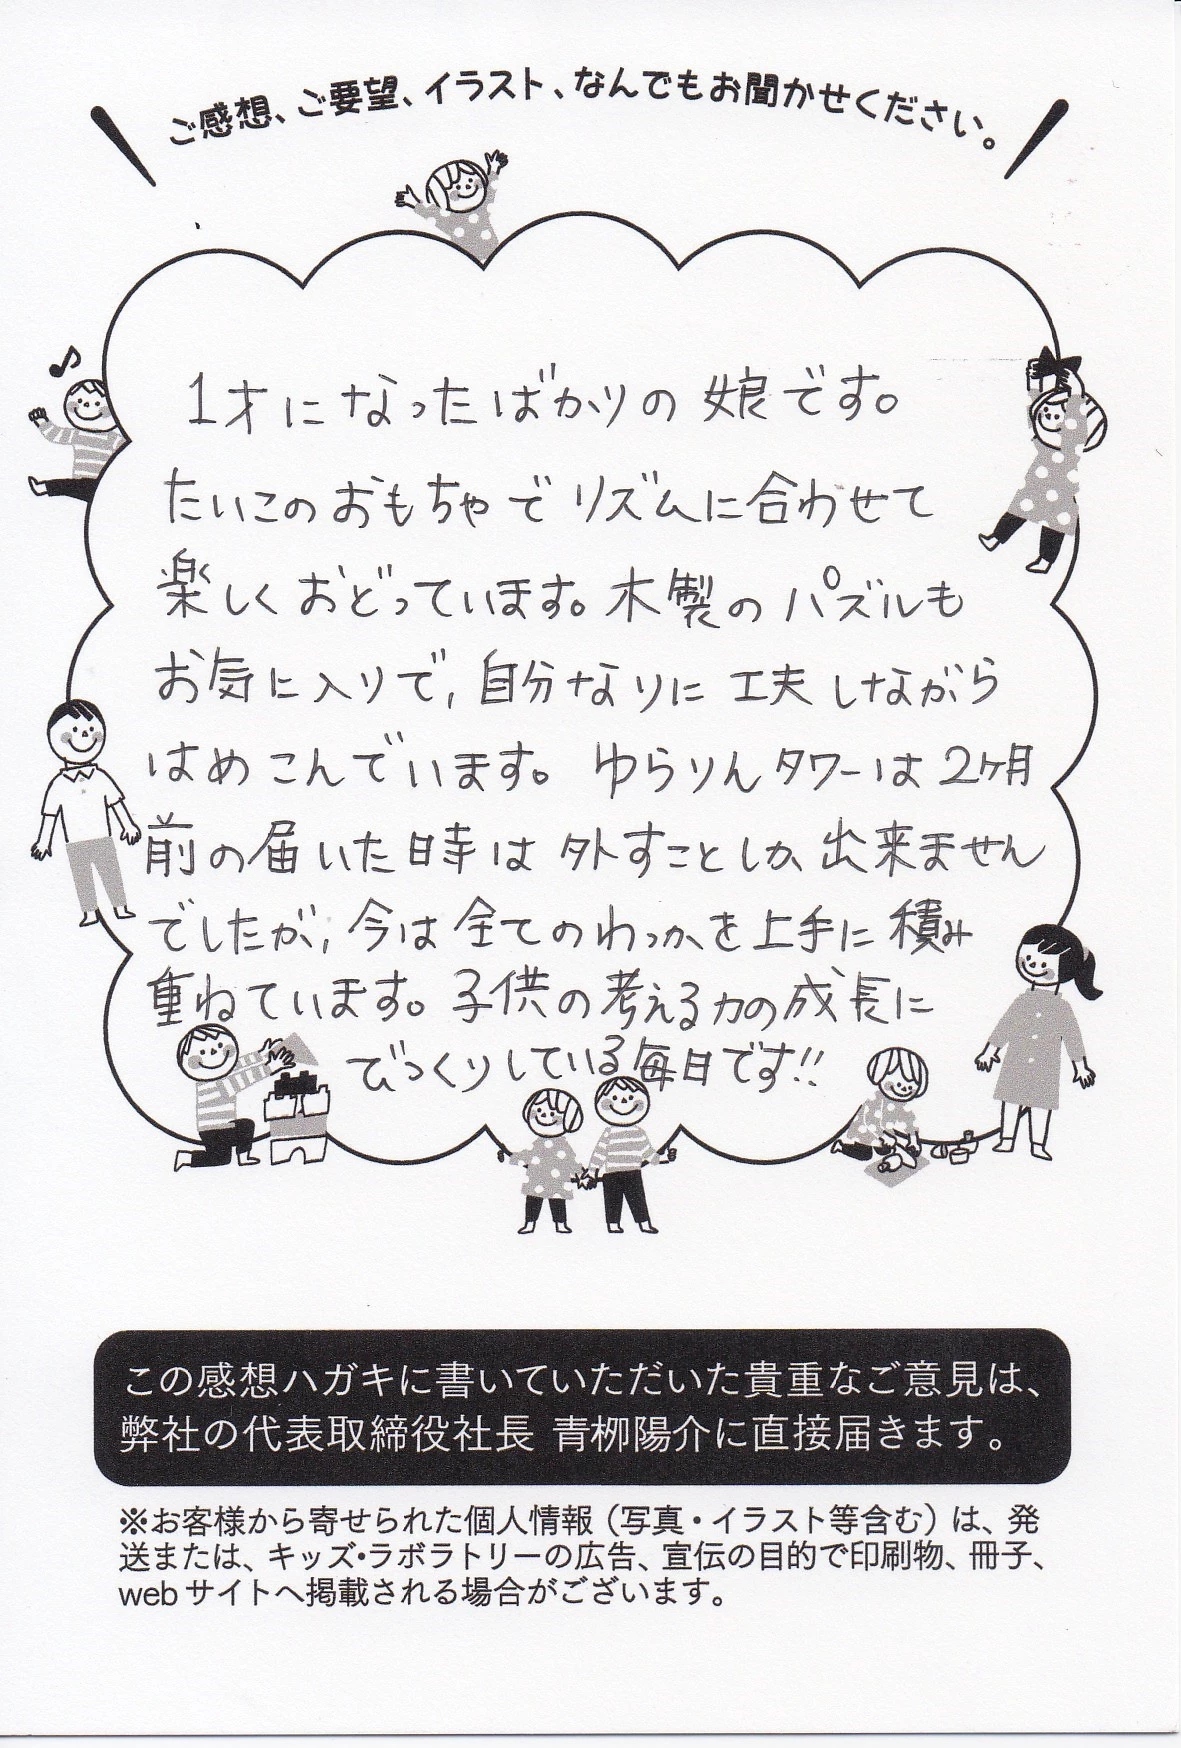 ご感想、ご要望、イラスト、なんでもお聞かせください。
1才になったばかりの娘です。
たいこのおもちゃでリズムに合わせて
楽しくおどっています。木製のパズルも
お気に入りで、自分なりに工夫しながら
はめこんでいます。ゆらりんタワーは2ヶ月
前の届いた時は外すことしか出来ません
でしたが、今は全てのわっかを上手に積み
重ねています。子供の考える力の成長に
びっくりしている毎日です!!
この感想ハガキに書いていただいた貴重なご意見は、
弊社の代表取締役社長 青栁陽介に直接届きます。
※お客様から寄せられた個人情報（写真・イラスト等含む）は、発
送または、キッズ・ラボラトリーの広告、宣伝の目的で印刷物、冊子、
webサイトへ掲載される場合がございます。